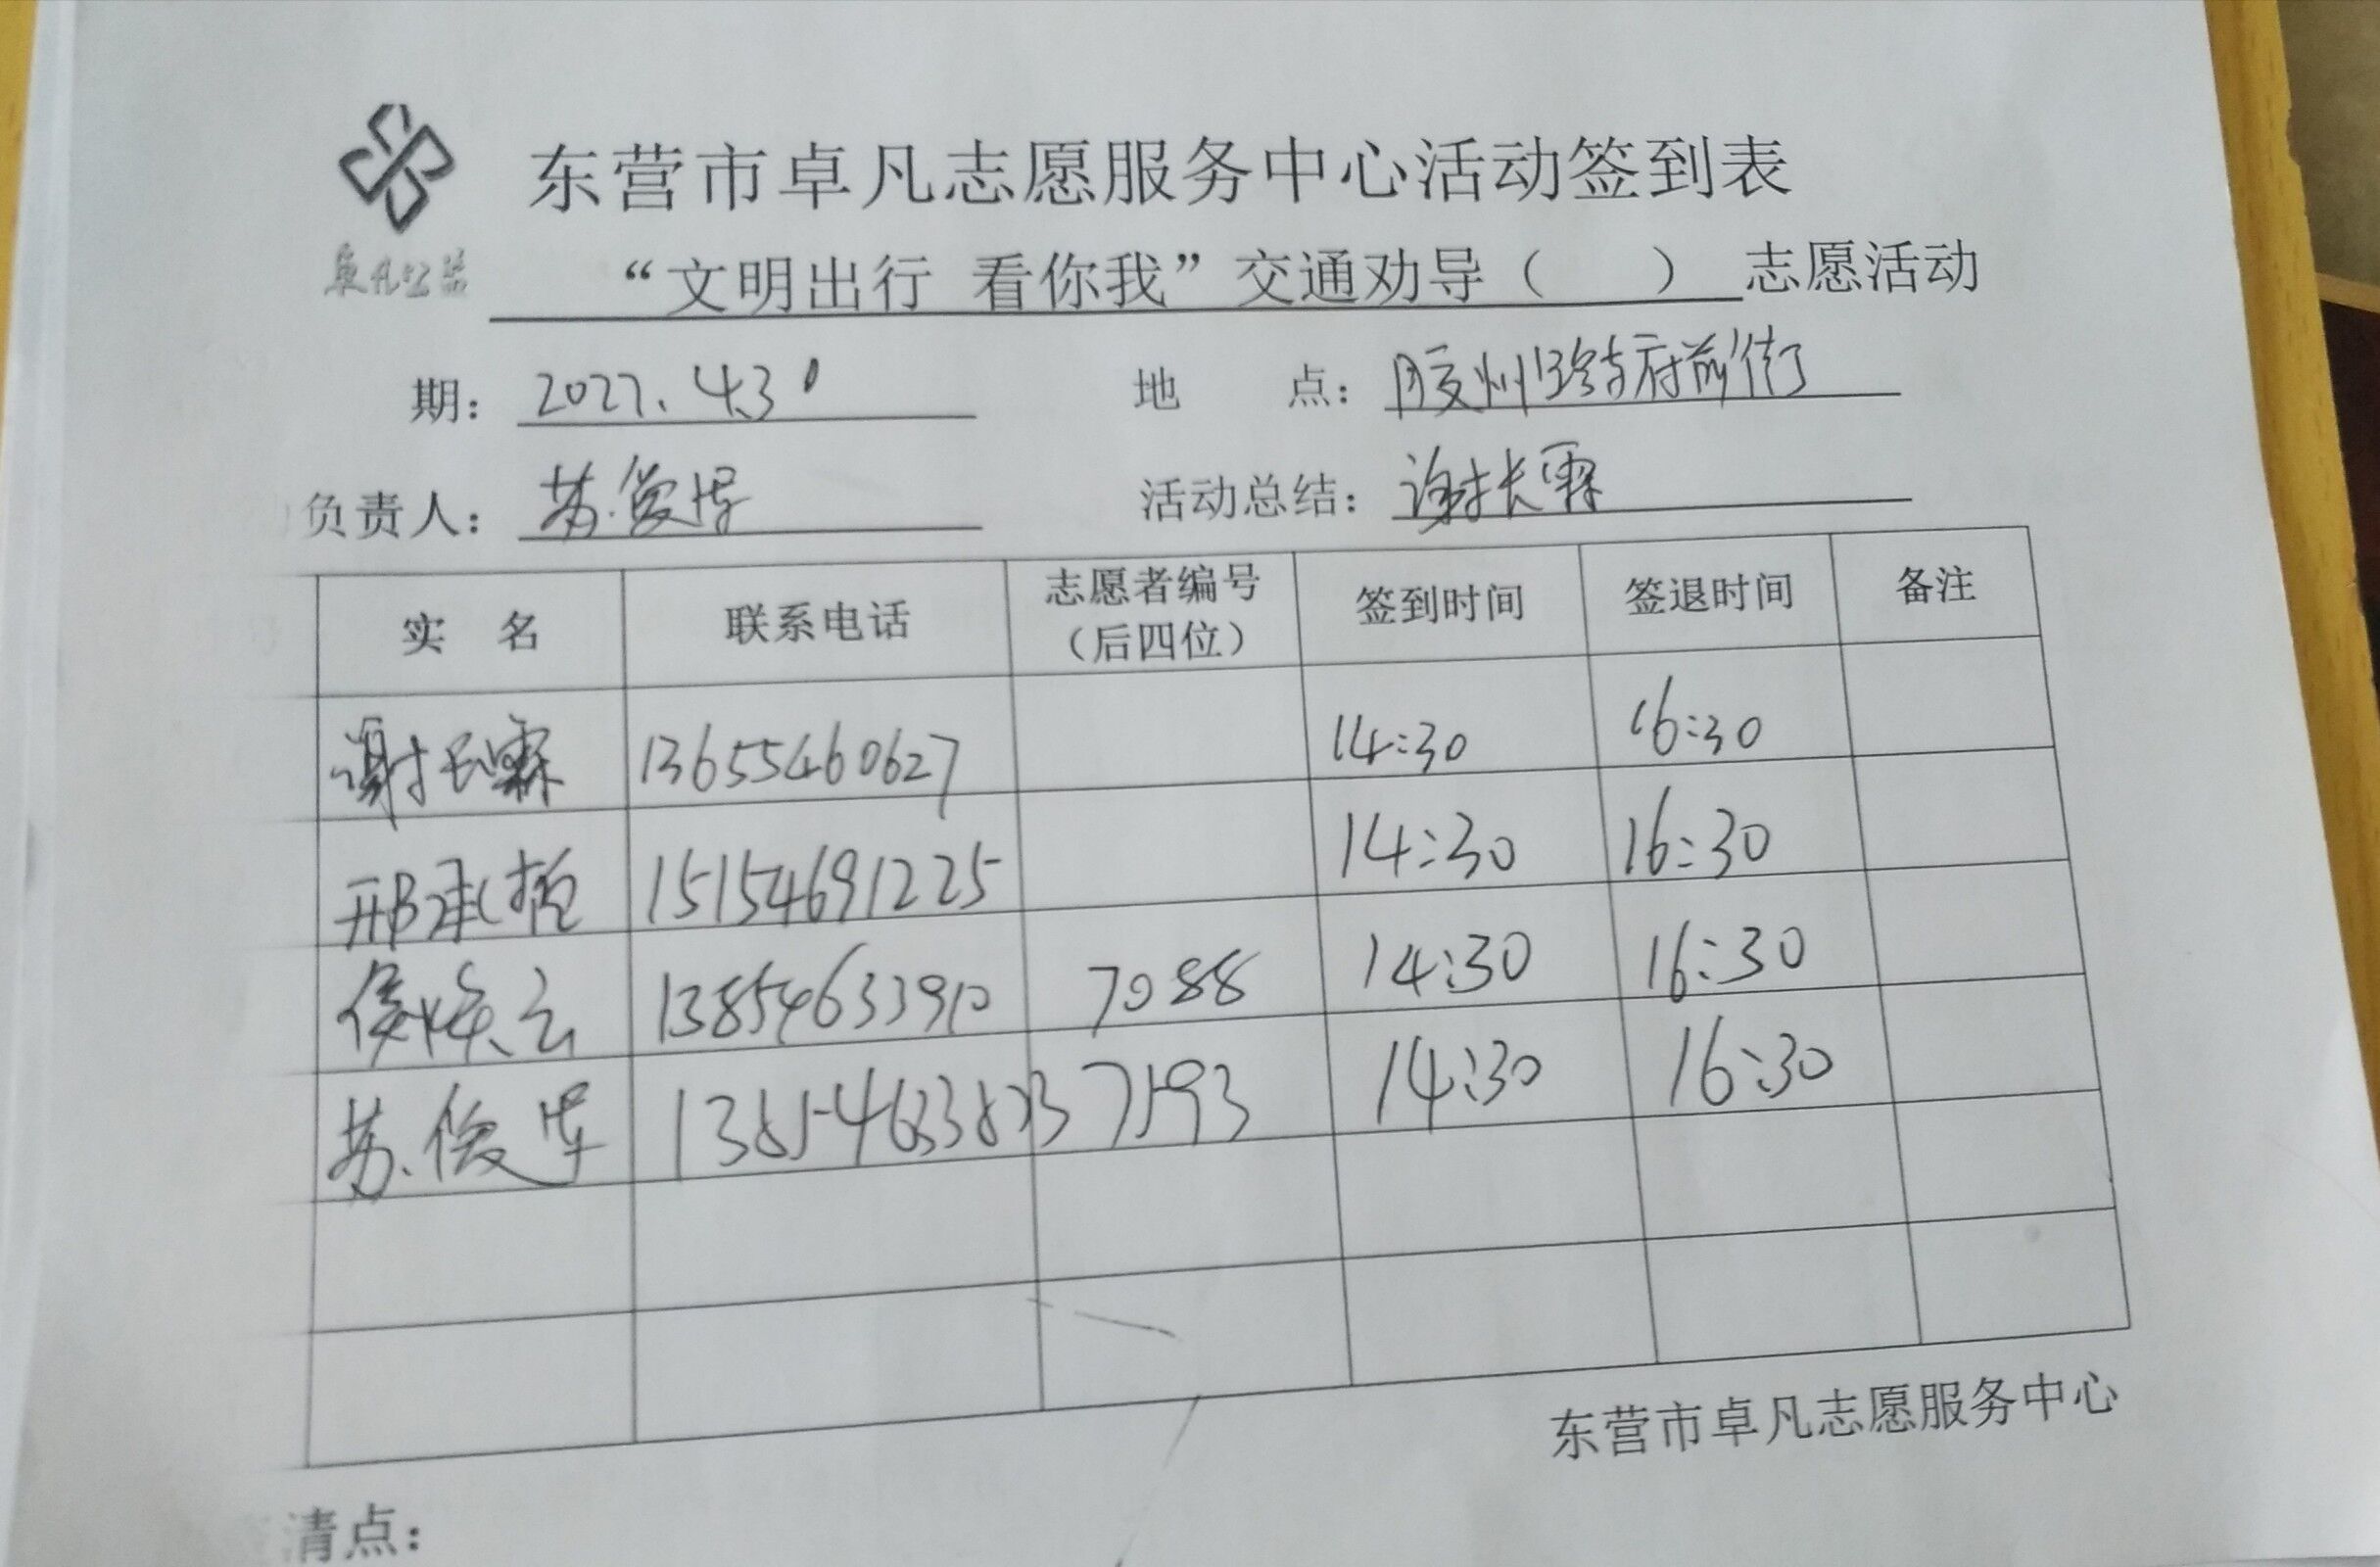 东营市卓凡志愿服务中心活动签到表
卓凡公益
“文明出行 看你我”交通劝导（ ）志愿活动
期： 2022.4.30 地 点： 胶州路与府前街
负责人： 苏俊华 活动总结： 谢长霖
实 名 联系电话 志愿者编号（后四位） 签到时间 签退时间 备注
谢长霖 13655460627 14:30 16:30
邢承 15154691225 14:30 16:30
侯 云 13854633910 7088 14:30 16:30
苏俊华 7193 14:30 16:30
东营市卓凡志愿服务中心
清点：